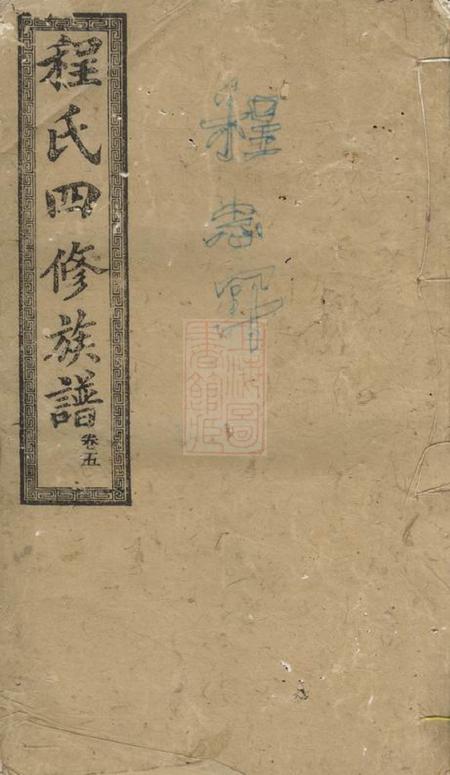 程氏四修族譜
卷五
程忠
上海圖
書館藏